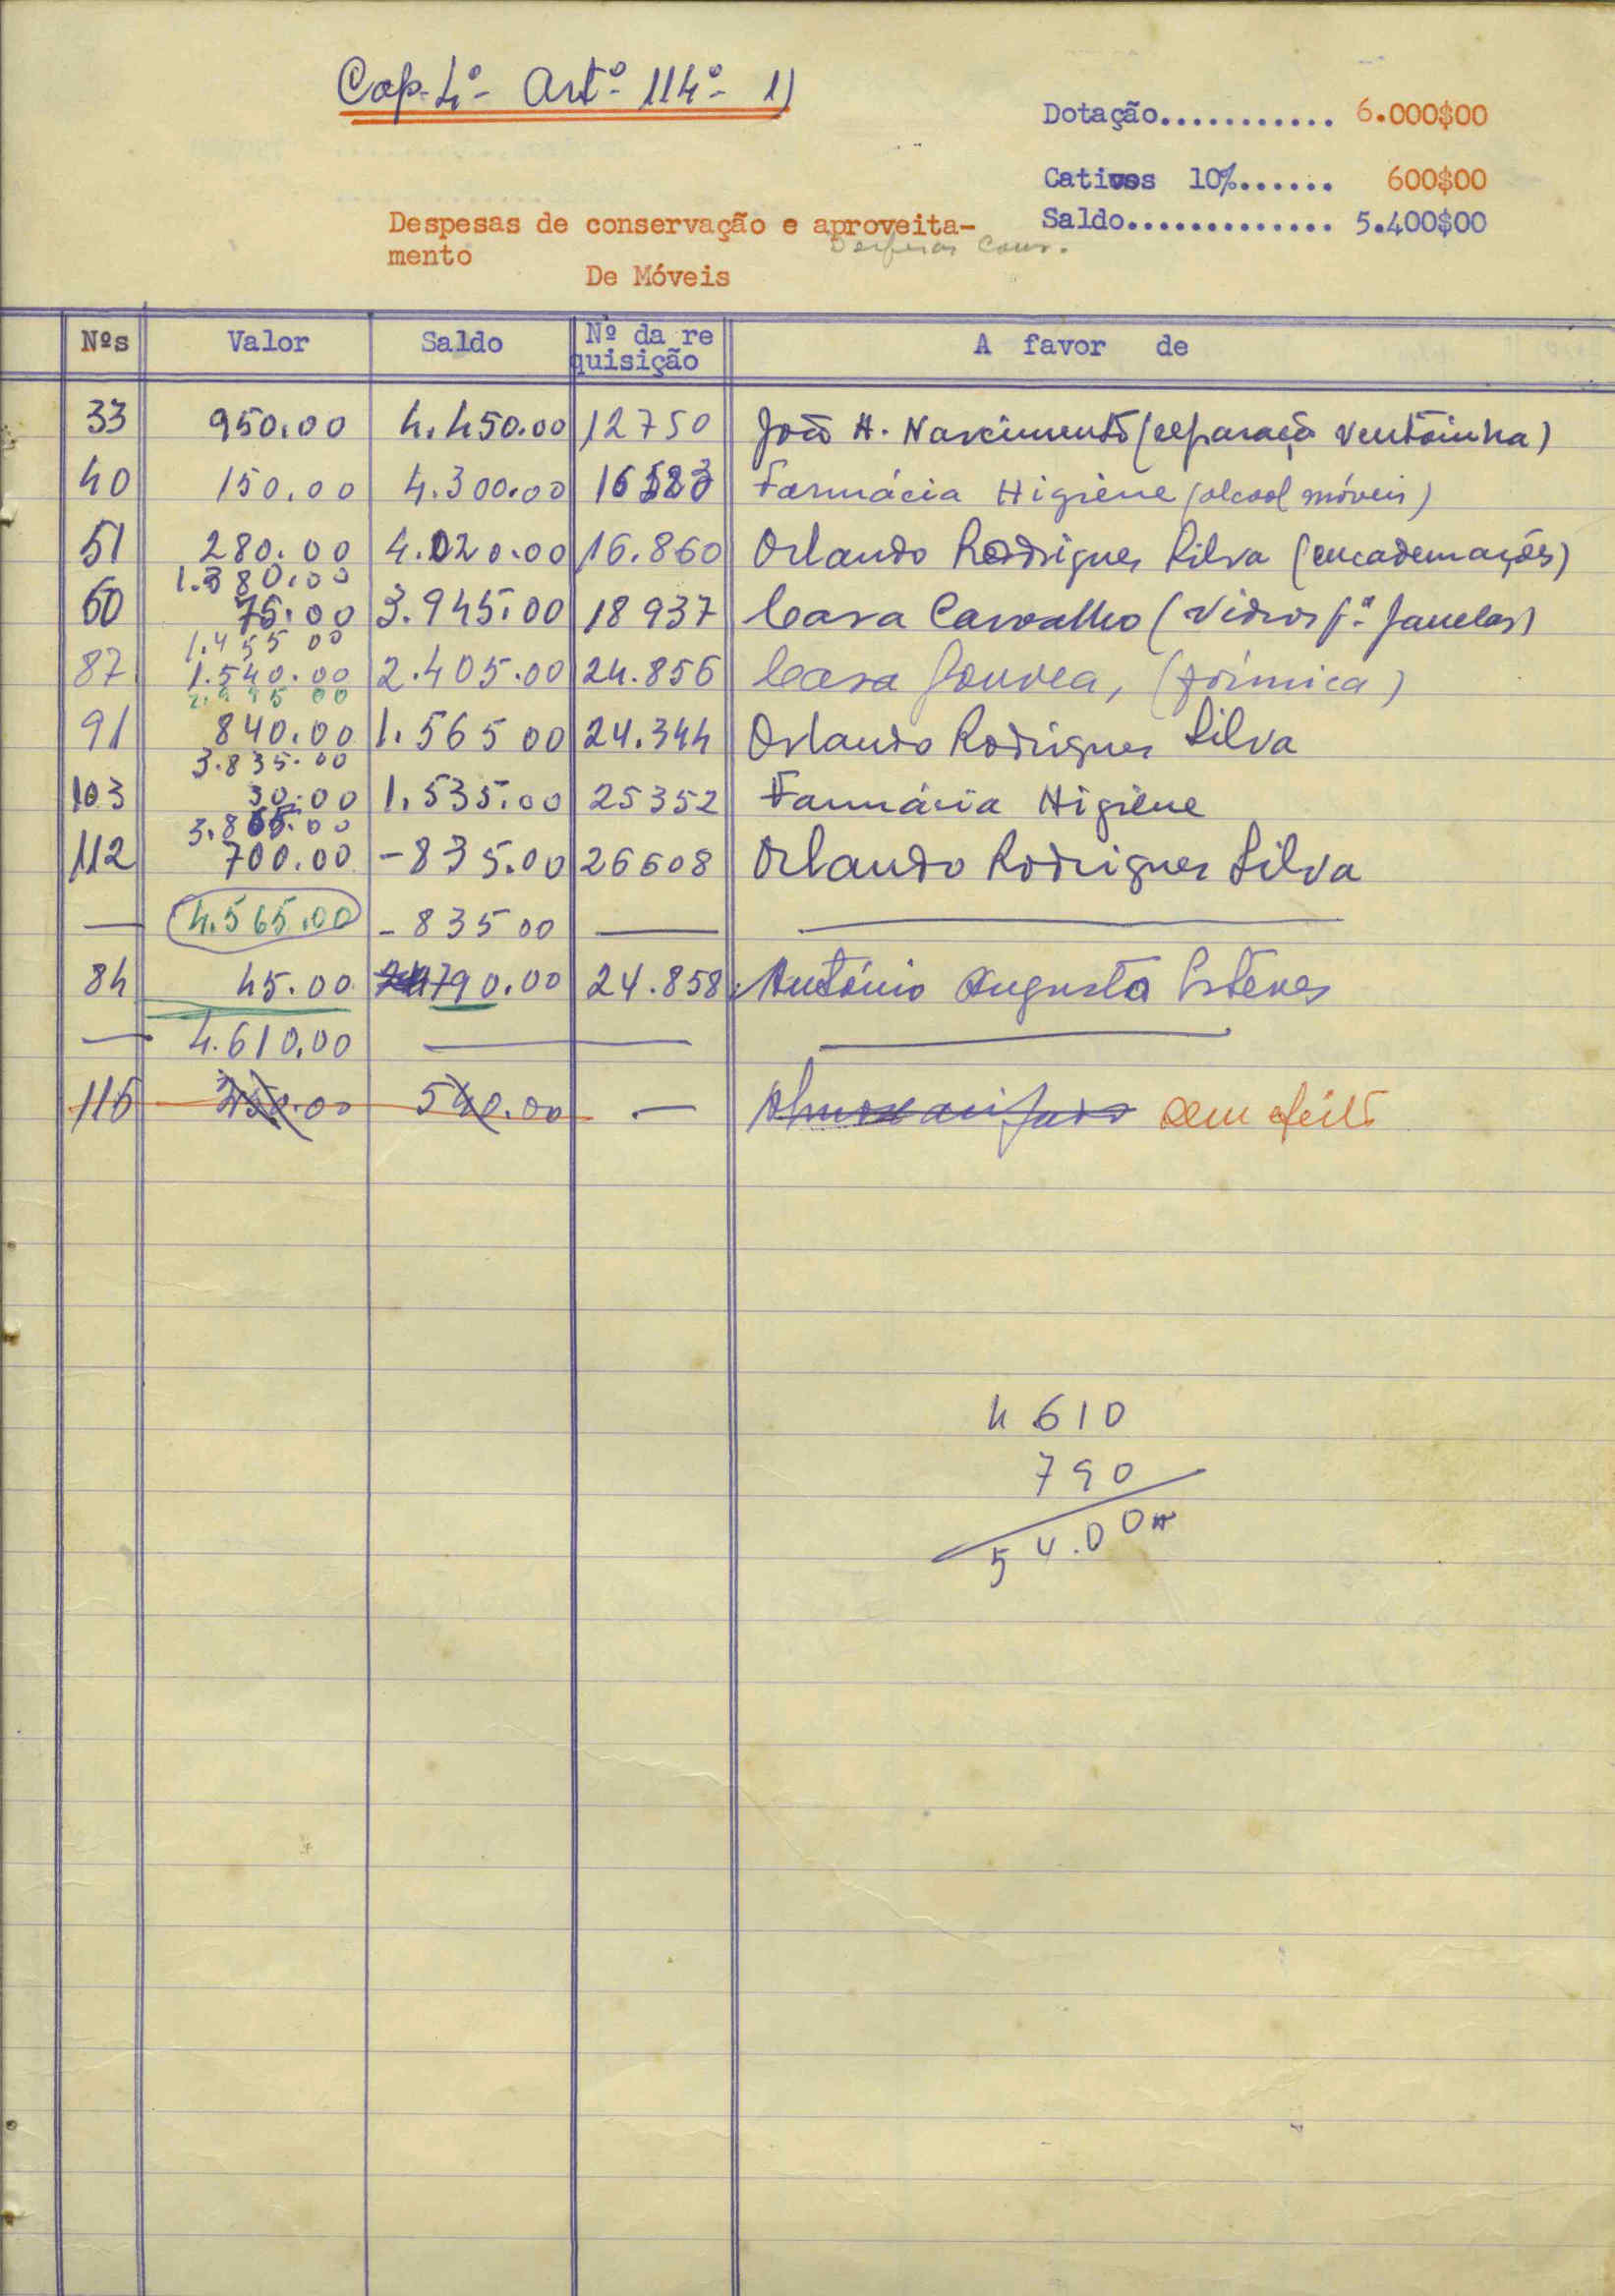 Cap. 4º - Artº 114º - 1)
Dotação........... 6.000$00
Cativos 10%...... 600$00
Saldo............. 5.400$00
Despesas de conservação e aproveita-
mento
Despesas Cons.
De Móveis
Nºs Valor Saldo Nº da re A favor de
quisição
33 950.00 4.450.00 12750 João H. Nascimento (reparação ventoinha)
40 150.00 4.300.00 16583 Farmácia Higiene (alcool móveis)
51 280.00 4.020.00 16.860 Orlando Rodrigues Silva (encadernações)
1.380.00
60 75.00 3.945.00 18937 Casa Carvalho (vidros p.ª janelas)
1.455 00
87 1.540.00 2.405.00 24.856 Casa Gouvea, (fórmica)
2.995 00
91 840.00 1.565 00 24.344 Orlando Rodrigues Silva
3.835.00
103 30.00 1.535.00 25352 Farmácia Higiene
3.865.00
112 700.00 -835.00 26608 Orlando Rodrigues Silva
— 4.565.00 - 835 00 —
84 45.00 790.00 24.858 António Augusto Esteves
— 4.610.00 —
116 250.00 540.00 — Almoxarifado sem efeito
4 610
790
5 4.00